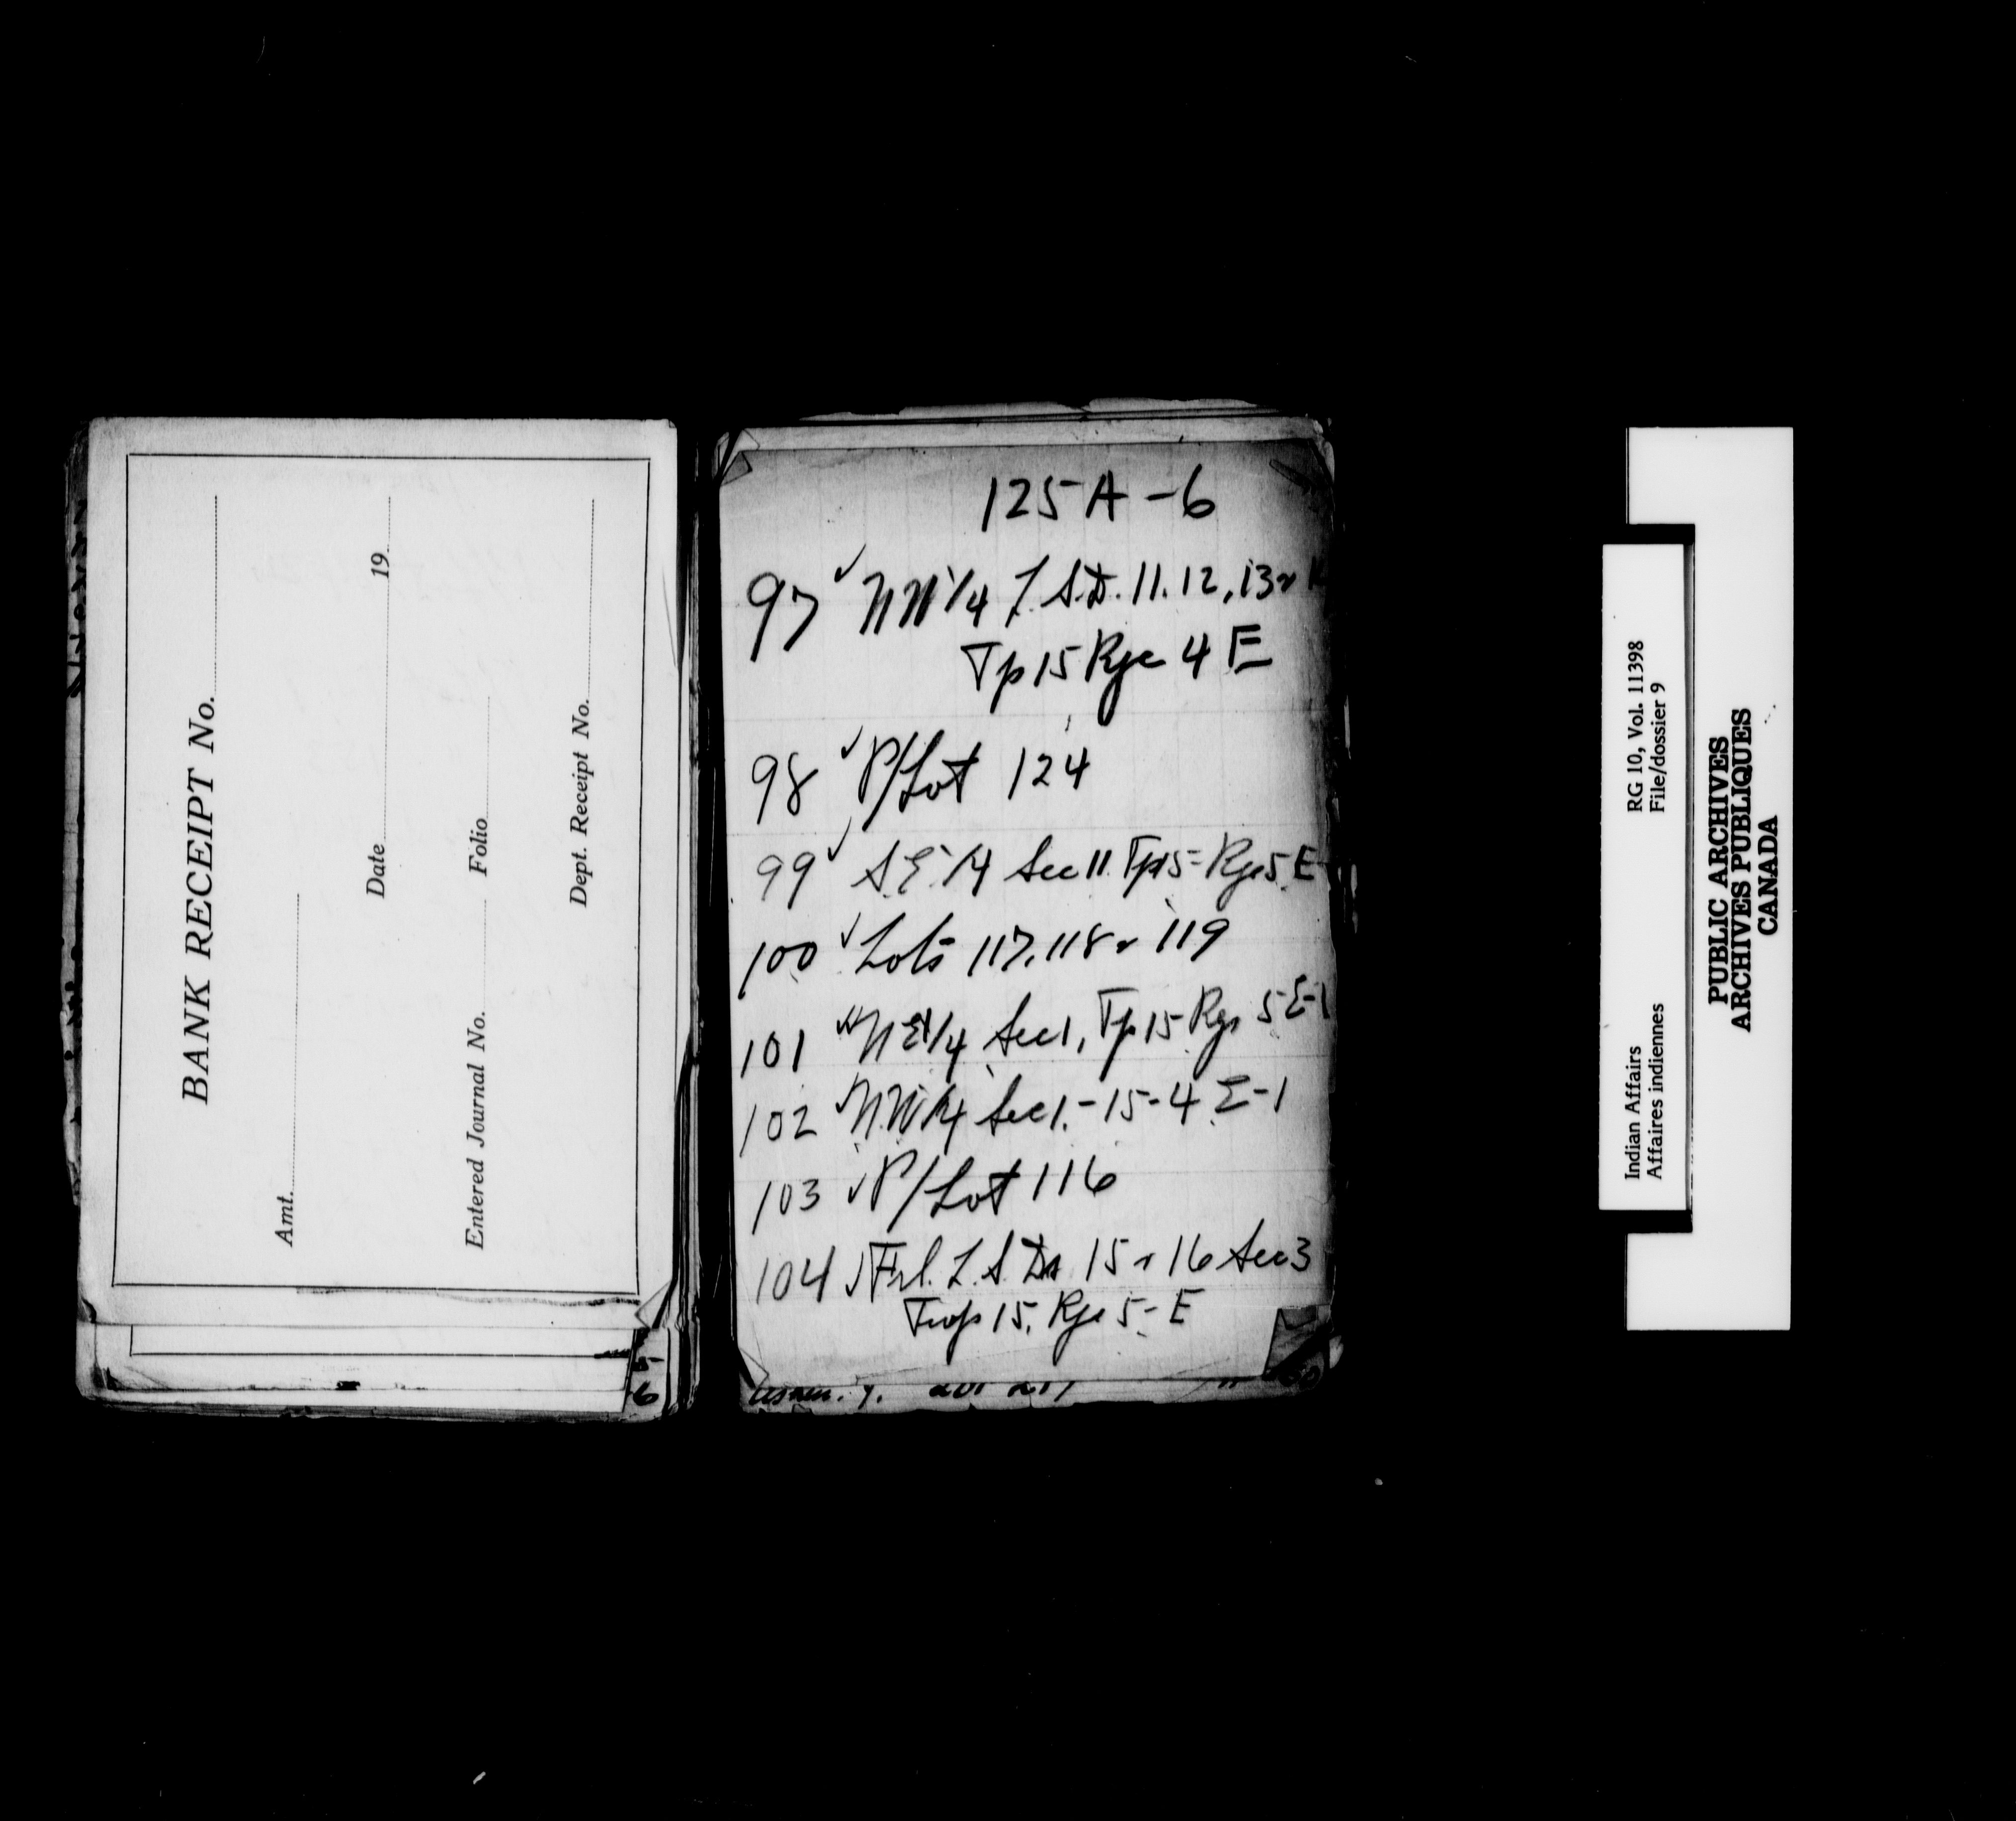 BANK RECEIPT No.
Amt.
Date 19
Entered Journal No. Folio
Dept. Receipt No.
5
6
125 A - 6
97 ✓ NW 1/4 L.S.D. 11. 12, 13 &
Tp 15 Rge 4 E
98 ✓ P/Lot 124
99 ✓ S.E. 1/4 Sec 11. Tp 15 - Rge 5. E
100 ✓ Lots 117, 118 & 119
101 N E 1/4 Sec 1, Tp 15 Rge 5 E-1
102 ✓ N.W 1/4 Sec 1. - 15 - 4 E-1
103 ✓ P/Lot 116
104 ✓ Frl. L.S. Ds 15 & 16 Sec 3
Twp 15, Rge 5 - E
Indian Affairs RG 10, Vol. 11398
Affaires indiennes File/dossier 9
PUBLIC ARCHIVES
ARCHIVES PUBLIQUES
CANADA